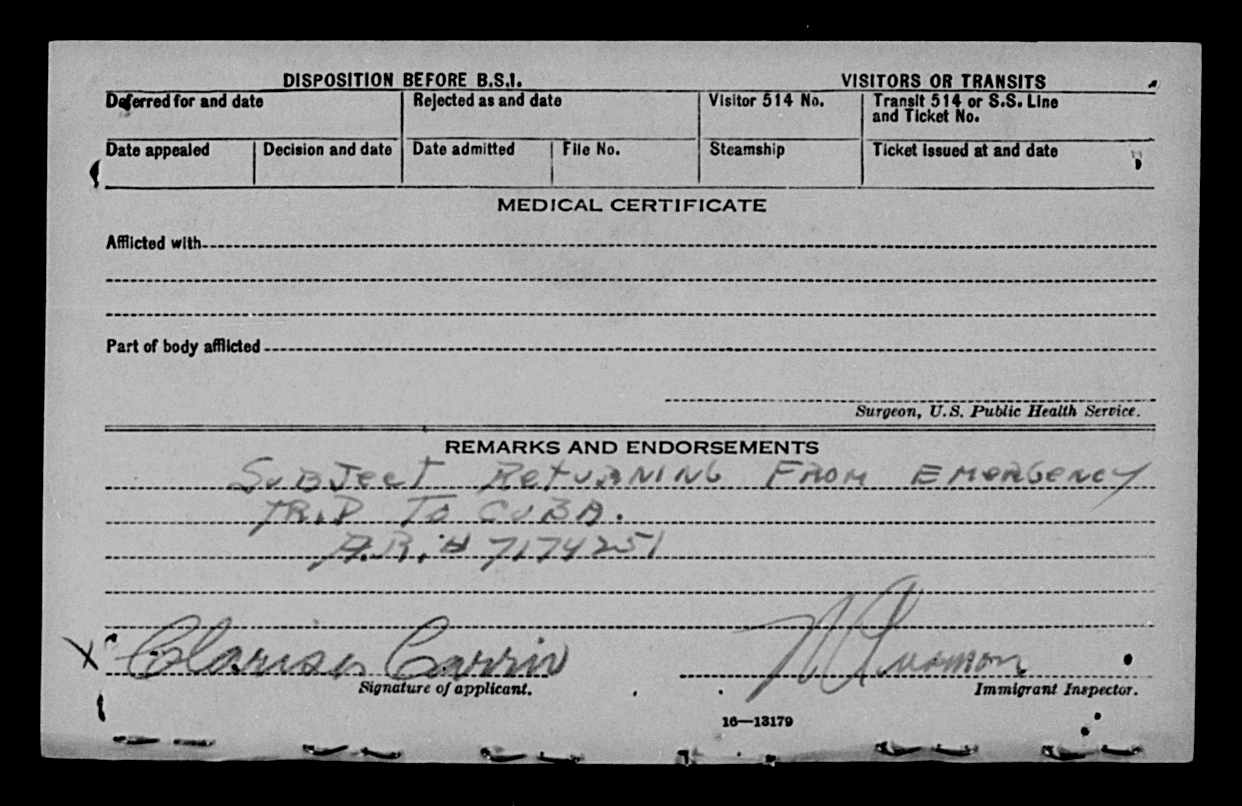 DISPOSITION BEFORE B.S.I.
VISITORS OR TRANSITS
Deferred for and date
Rejected as and date
Visitor 514 No.
Transit 514 or S.S. Line
and Ticket No.
Date appealed
Decision and date
Date admitted
File No.
Steamship
Ticket issued at and date
MEDICAL CERTIFICATE
Afflicted with
Part of body afflicted
Surgeon, U.S. Public Health Service.
REMARKS AND ENDORSEMENTS
SUBJECT RETURNING FROM EMERGENCY
TRIP TO CUBA.
A.R. # 7174251
X
Signature of applicant.
Immigrant Inspector.
16—13179